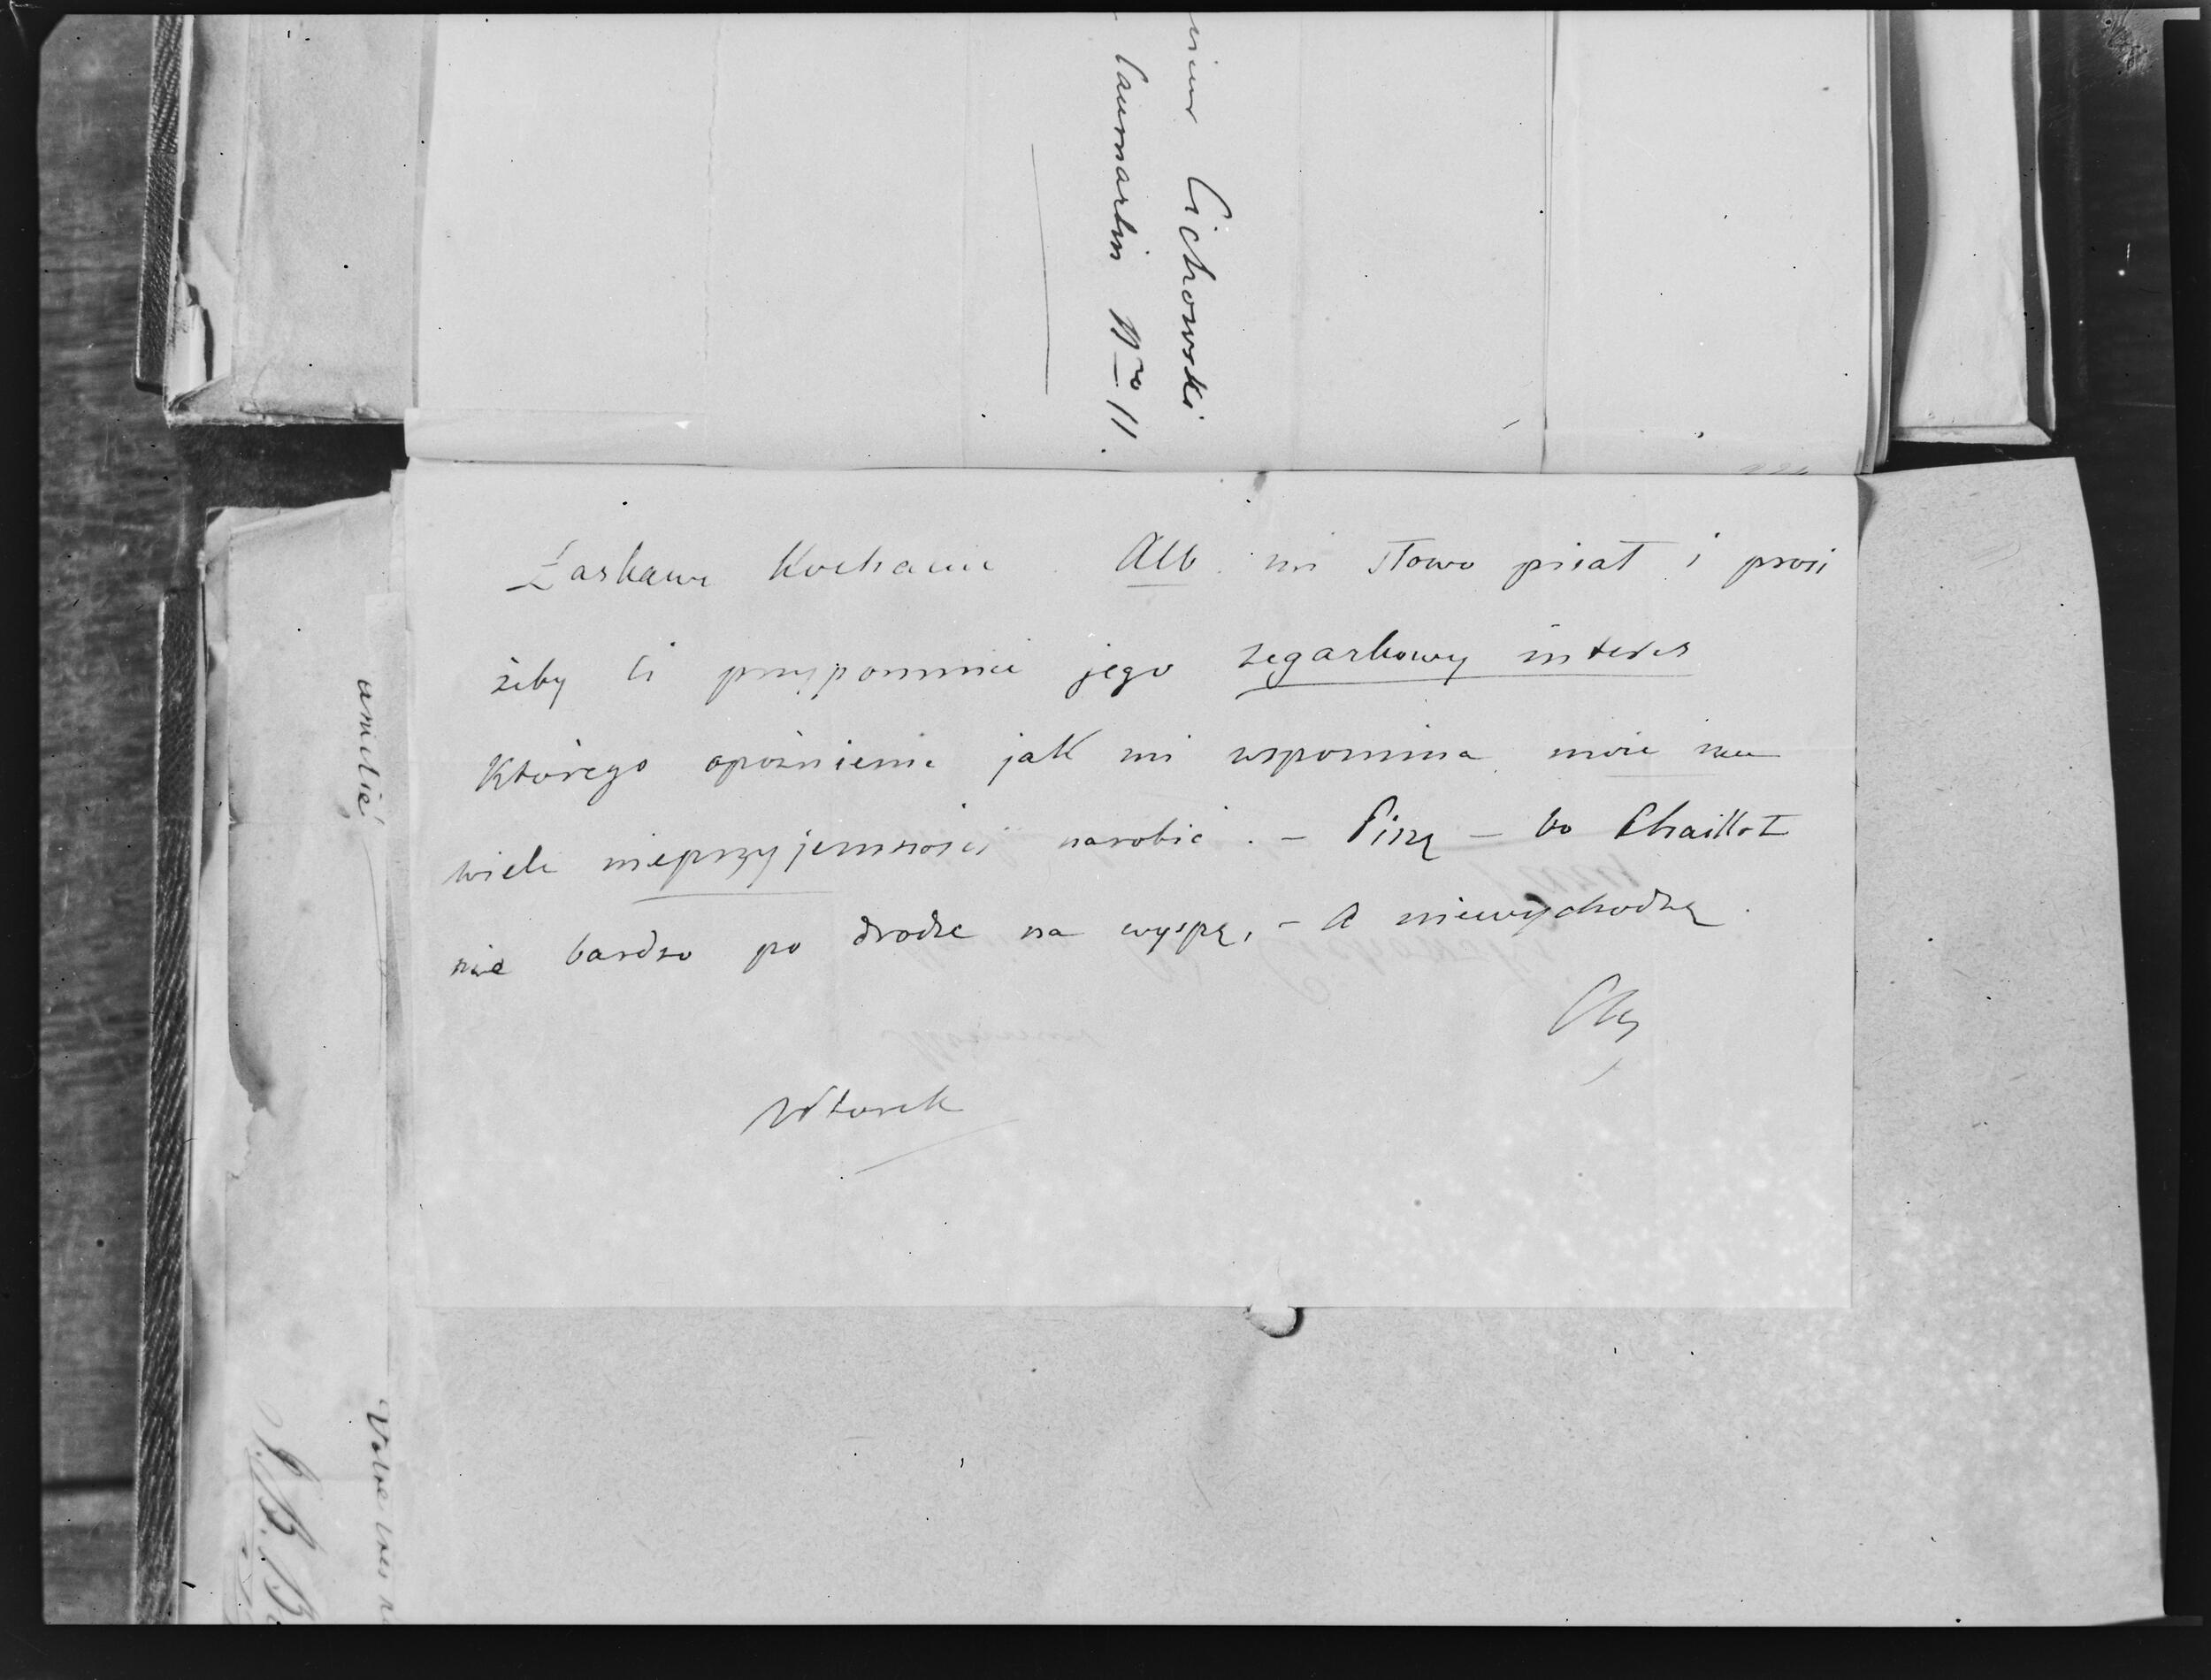 Cichowski
Caumartin Nro 11.
Łaskawe Kochanie Alb. mi słowo pisał i prosi
żeby Ci przypomnieć jego zegarkowy interes
którego opóźnienie jak mi wspomina może mu
wiele nieprzyjemności narobić. – Piszę – bo Chaillot
nie bardzo po drodze na wyspę, – A niewychodzę.
Ch
Wtorek